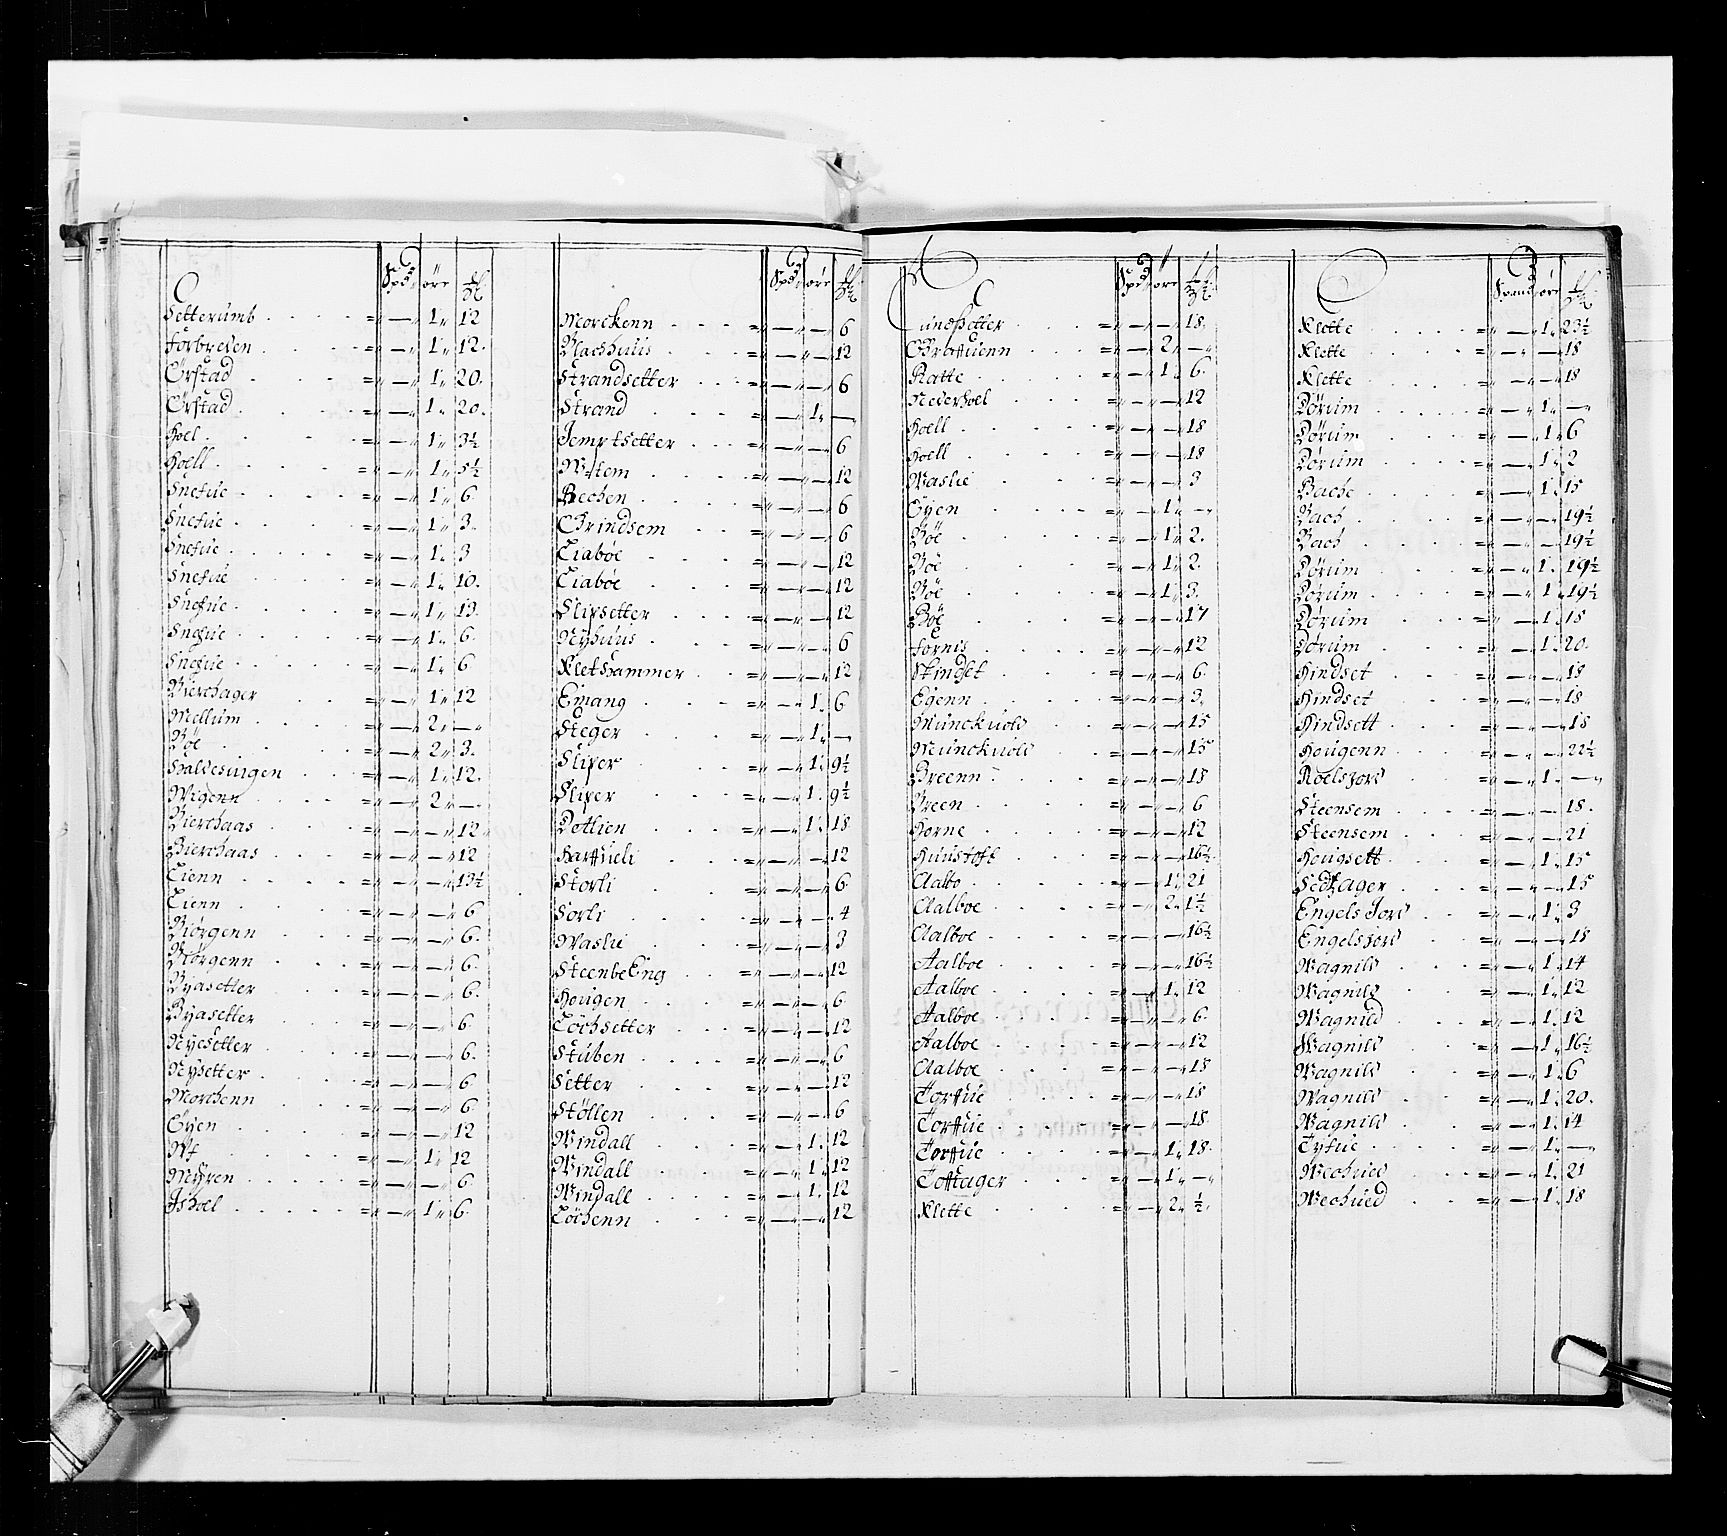 Spd öre
Setterumb = — 1 12
Forbreden = — 1 12
Örstad = — 1 20
Örstad = — 1 20
Hoel = — 1 3½
Hoell = — 1 5½
Snefue = — 1 6
Snefue = — 1 3
Snefue = — 1 3
Snefue = — 1 10
Snefue = — 1 13
Snefue = — 1 6
Snefue = — 1 6
Bierchager = — 1 12
Mellum = — 2 —
Böe = — 2 3
Haldesvigen = — 1 12
Wigenn = — 2 —
Bierchaas = — — 12
Bierchaas = — — 12
Lienn = — — 13½
Lienn = — — 6
Biörgenn = — — 6
Biörgenn = — — 6
Byasetter = — — 6
Byasetter = — — 6
Nyesetter = — — 6
Nysetter = — — 6
Morchenn = — — 6
Öyen = — — 12
Wf = — 1 12
Myren = — — 6
Ishoel = — 1 6

Spd öre
Morckenn = — — 6
Blaeshuus = — — 12
Strandsetter = — — 6
Strand = — 1 —
Jemptsetter = — — 6
Wstem = — — 12
Bechen = — — 6
Grindsem = — — 6
Liaböe = — — 12
Liaböe = — — 12
Slipsetter = — — 12
Nyhuus = — — 6
Kletshammer = — — 12
Emang = — 1 6
Steger = — 1 —
Sliper = — 1 9½
Sliper = — 1 9½
Detlien = — 1 18
Harffueli = — — 12
Storli = — — 6
Sorli = — — 4
Waslie = — — 3
SteenbeEng = — — 12
Hougen = — — 6
Löchsetter = — — 12
Stuben = — — 6
Setter = — — 12
Stöllen = — — 6
Windall = — 1 12
Windall = — 1 12
Windall = — 1 12
Löchenn = — — 12

Spd öre
Lundsetter = — — 18
Graffuenn = — 2 —
Ratte = — 1 6
Nederhoel = — — 12
Hoell = — — 18
Hoell = — — 18
Waslie = — — 3
Öyen = — 1 —
Böe = — 1 2
Böe = — 1 2
Böe = — 1 3
Böe = — — 17
Fornis = — — 12
Skindset = — — 6
Egenn = — — 3
Munckuold = — — 15
Munckuold = — — 15
Breenn = — — 18
Breen = — — 6
Horne = — — 12
Huustoft = — — 16½
Aalbo = — 1 21
Aalboe = — 2 1½
Aalboe = — — 16½
Aalboe = — — 16½
Aalboe = — 1 12
Aalboe = — — 6
Aalboe = — — 12
Aalboe = — — 18
Torffue = — — 18
Torffue = — — 18
Torffue = — 1 18
Tofftager = — 1 —
Klette = — 2 ½

Spand öre
Klette = — 1 23½
Klette = — — 18
Klette = — — 18
Dörum = — 1 —
Dörum = — 1 6
Dörum = — 1 2
Bache = — 1 15
Bach = — — 19½
Bach = — — 19½
Dörum = — 1 19½
Dörum = — 1 19½
Dörum = — 1 18
Dörum = — 1 20
Hindset = — — 18
Hindset = — — 18
Hindsett = — — 18
Hougenn = — — 22½
Roelsjord = — 1 —
Steensem = — — 18
Steensem = — — 21
Hougsett = — 1 15
Sedtager = — — 15
EngelsJord = — 1 3
Engelsjord = — — 18
Wagnild = — 1 14
Wagnild = — 1 12
Wagnild = — 1 12
Wagnild = — 1 16½
Wagnild = — 1 6
Wagnild = — 1 20
Wagnild = — 1 14
Tyfue = — 1 —
Wechued = — 1 21
Wechued = — 1 18